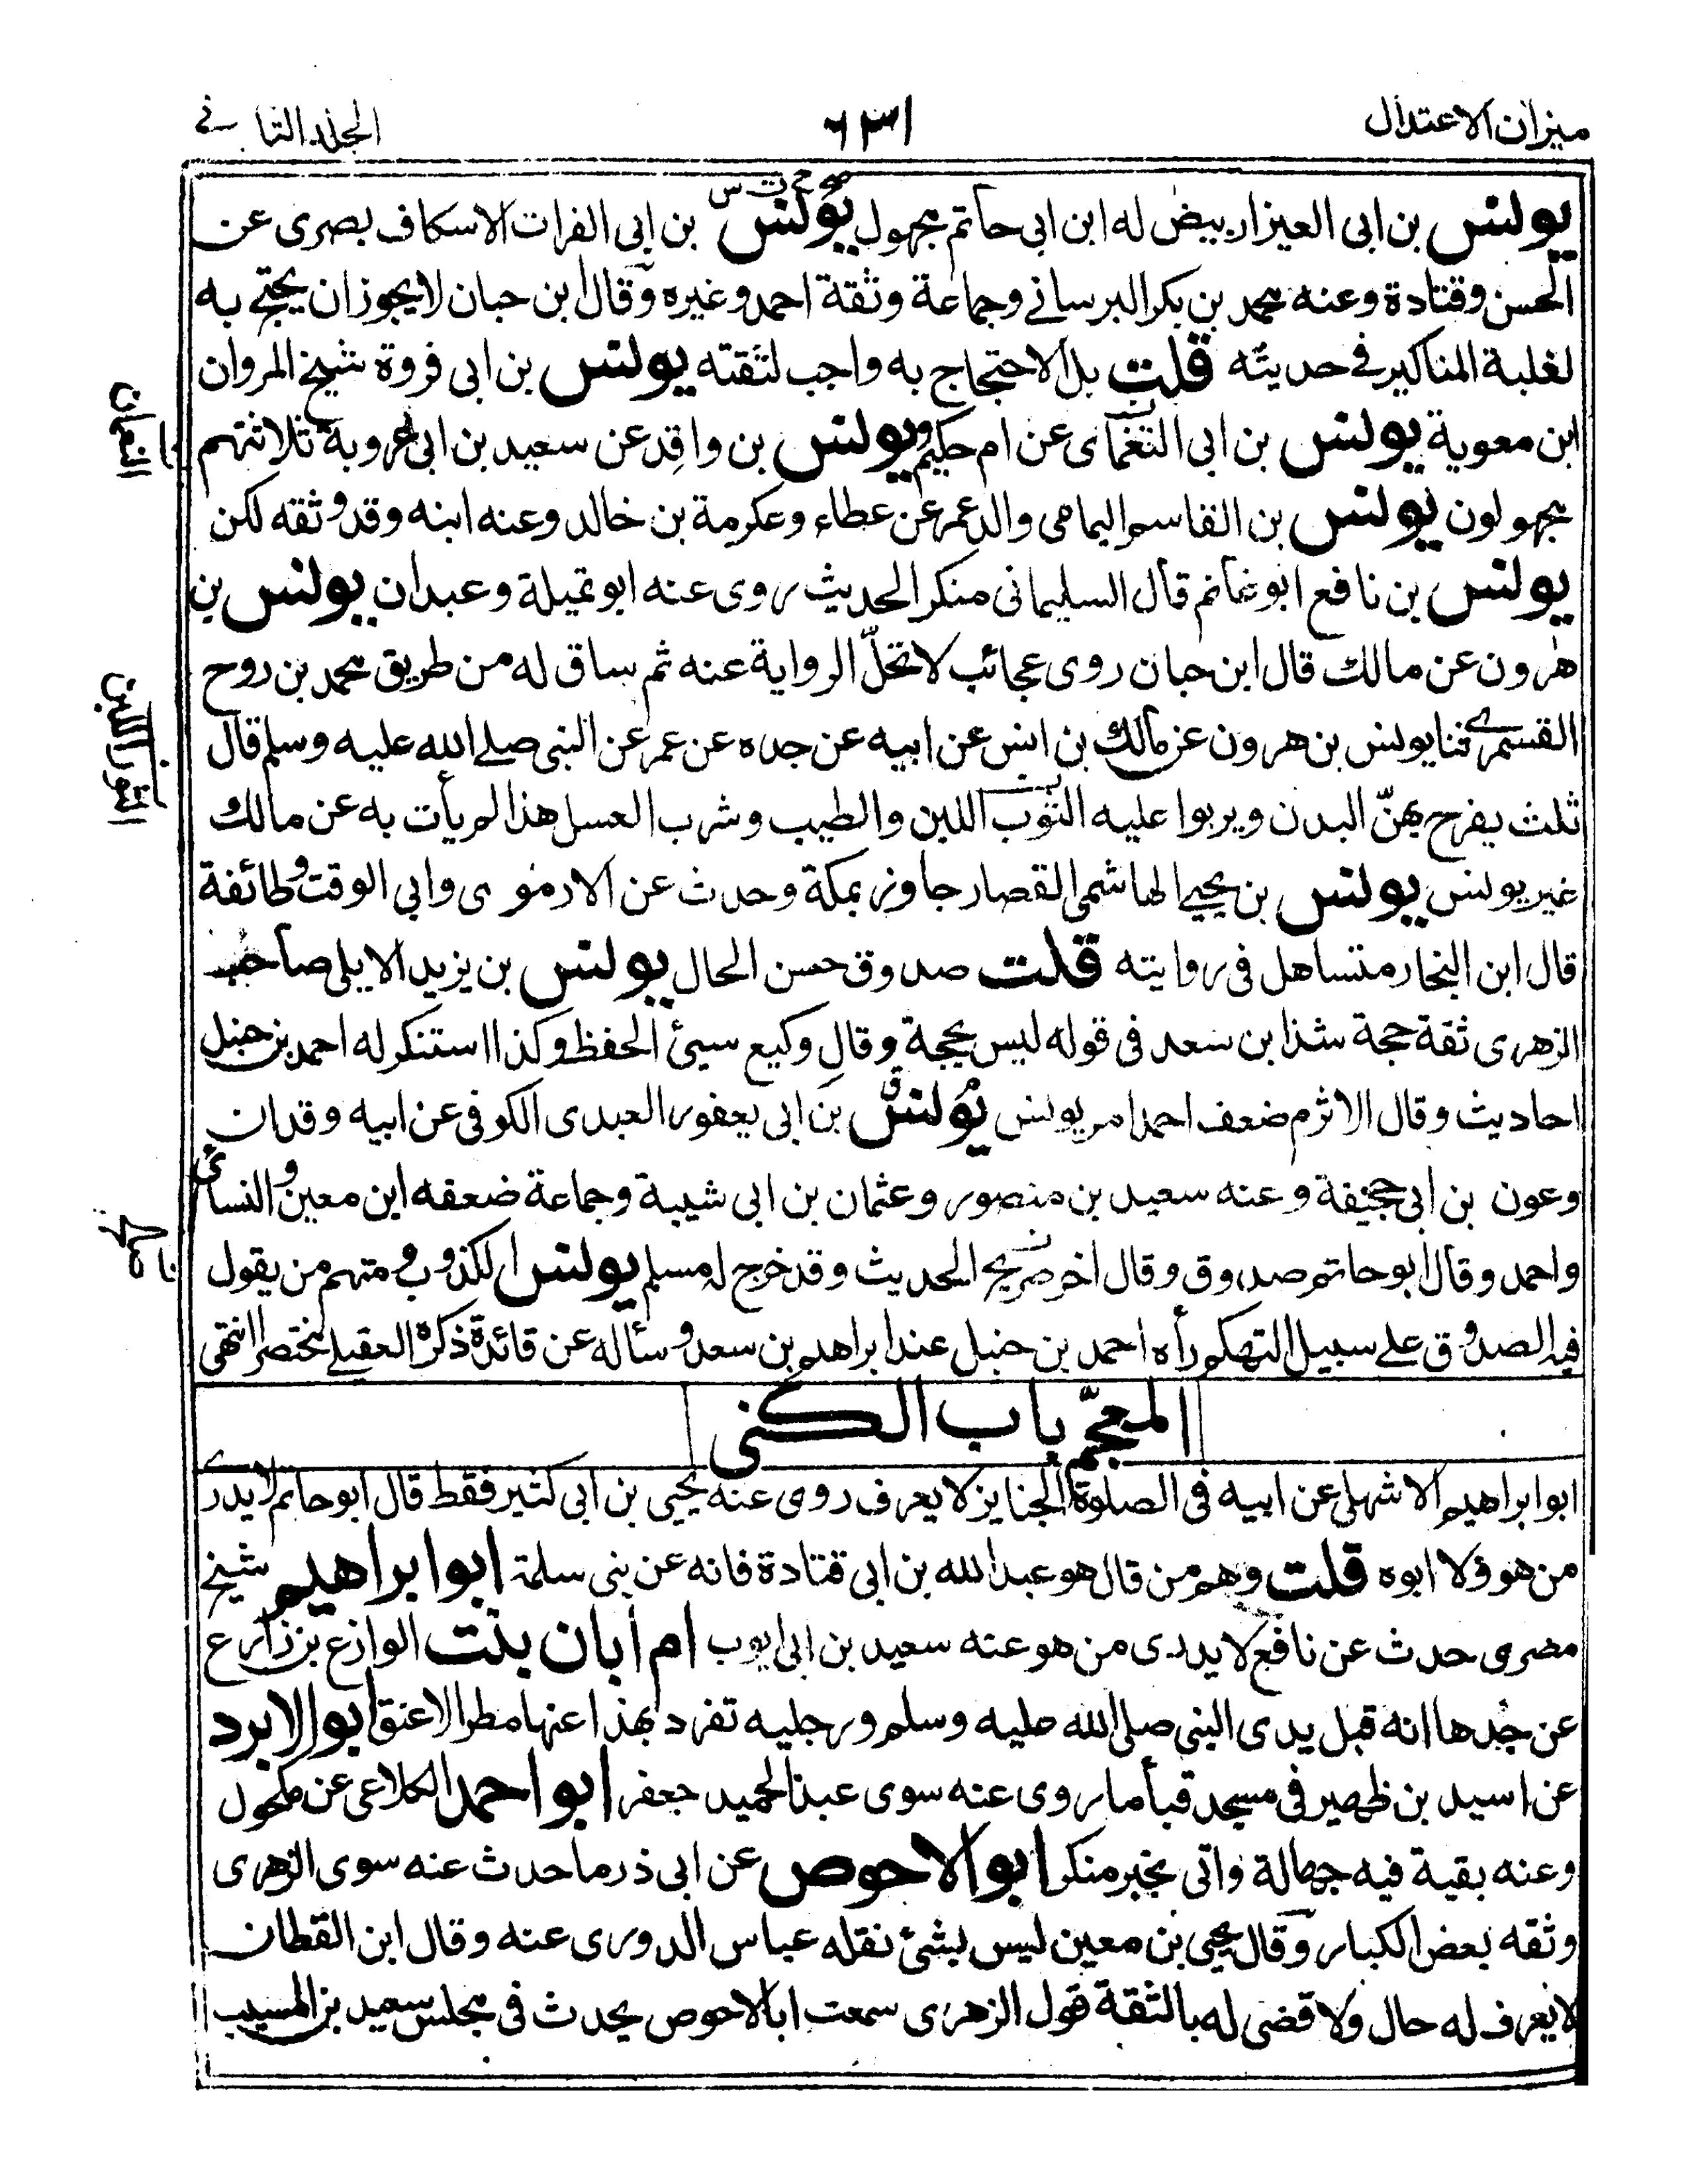 ميزان الاعتدال
٦٣١
الجلد الثاني
يونس بن ابى العيزار بيض له ابن ابى حاتم مجهول يونس بن ابى الفرات الاسكاف بصرى عن
الحسن وقتادة وعنه محمد بن بكر البرسانى وجماعة وثقة احمد وغيره وقال ابن حبان لا يجوز ان يحتج به
لغلبة المناكير فى حديثه قلت بل الاحتجاج به واجب لثقته يونس بن ابى فروة شيخ المروان
ابن معوية يونس بن ابى النعمان عن ام حكيم ويونس بن واقد عن سعيد بن ابى عروبة ثلاثتهم
مجهولون يونس بن القاسم اليمامى والد عمر عن عطاء وعكرمة بن خالد وعنه ابنه وقد وثقه لكن
يونس بن نافع ابو غانم قال السليمانى منكر الحديث روى عنه ابو تميلة وعبدان يونس بن
هرون عن مالك قال ابن حبان روى عجائب لا تحلّ الرواية عنه ثم ساق له من طريق محمد بن روح
القسمرى ثنا يونس بن هرون عن مالك بن انس عن ابيه عن جده عن عمر عن النبى صلے الله عليه وسلم قال
ثلث يفرح بهنّ البدن ويربوا عليه الثوب اللين والطيب وشرب العسل هذا لم يأت به عن مالك
غير يونس يونس بن يحيے الهاشمى القصار جاور بمكة وحدث عن الارموى وابى الوقت وطائفة
قال ابن النجار متساهل فى روايته قلت صدوق حسن الحال يونس بن يزيد الايلى صاحب
الزهرى ثقة حجة شذ ابن سعد فى قوله ليس بحجة وقال وكيع سيئ الحفظ وكذا استنكر له احمد بن حنبل
احاديث وقال الاثرم ضعف احمد امر يونس يونس بن ابى يعفور العبدى الكوفى عن ابيه وقدان
وعون بن ابى جحيفة وعنه سعيد بن منصور وعثمان بن ابى شيبة وجماعة ضعفه ابن معين والنسائى
واحمد وقال ابو حاتم صدوق وقال اخر الحديث وقد خرج له مسلم يونس الكذوب متهم من يقول
فيه الصدوق علے سبيل التهكم رأه احمد بن حنبل عند ابراهيم بن سعد وسأله عن فائدة ذكره العقيلے مختصرا انتهى
المعجم باب الكنى
ابو ابراهيم الاشهلى عن ابيه فى الصلوة الجنايز لا يعرف روى عنه يحيى بن ابى كثير فقط قال ابو حاتم لا يدرى
من هو ولا ابوه قلت وهم من قال هو عبد الله بن ابى قتادة فانه عن بنى سلمة ابو ابراهيم شيخ
مصرى حدث عن نافع لا يدرى من هو عنه سعيد بن ابى ايوب ام ابان بنت الوازع بن زارع
عن جدها انه قبل يدى النبى صلى الله عليه وسلم ورجليه تفرد بهذا عنها مطر الاعنق ابو الابرد
عن اسيد بن ظهير فى مسجد قبأ ما روى عنه سوى عبد الحميد جعفر ابو احمد الكلاعى عن مكحول
وعنه بقية فيه جهالة واتى بخبر منكر ابو الاحوص عن ابى ذر ما حدث عنه سوى الزهرى
وثقه بعض الكبار وقال يحيى بن معين ليس بشئ نقله عباس الدورى عنه وقال ابن القطان
لا يعرف له حال ولا قضى له بالثقة قول الزهرى سمعت ابا الاحوص يحدث فى مجلس سعيد بن المسيب